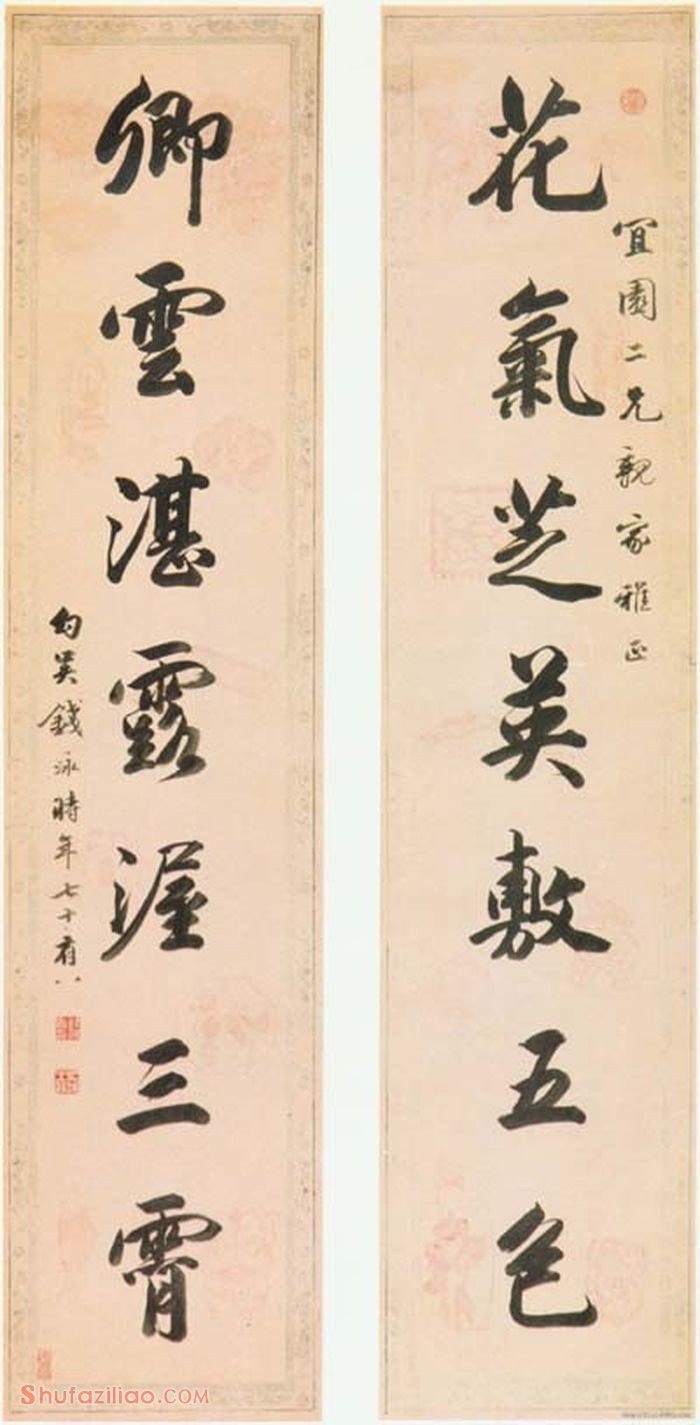 宜園二兄親家雅正
花氣芝英敷五色
卿雲湛露渥三霄
勾吴錢泳時年七十有八
Shufaziliao.com